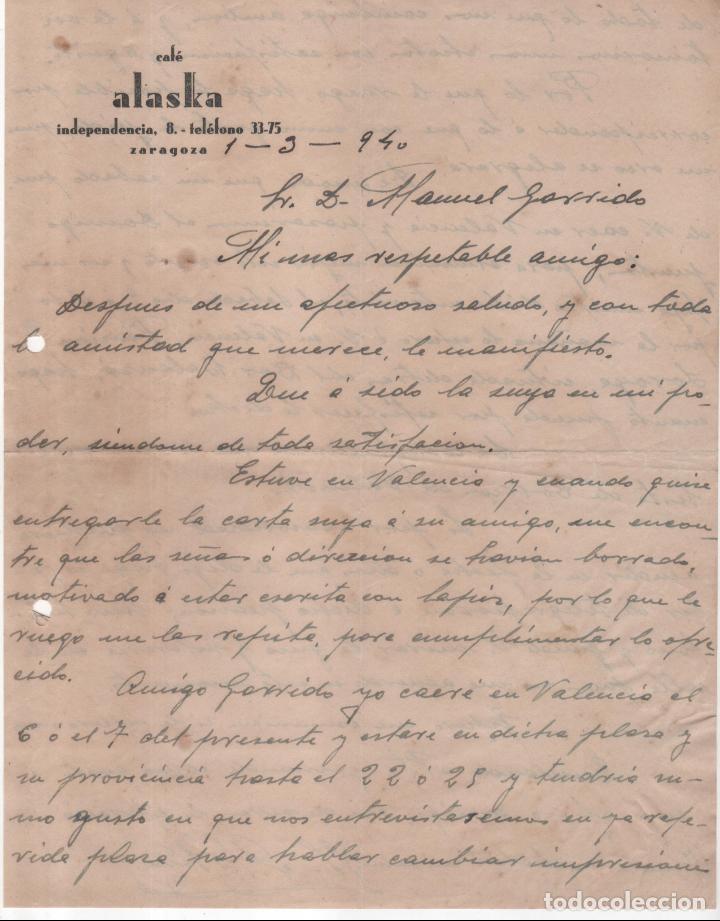 café
alaska
independencia, 8. - teléfono 33-75
zaragoza 1 - 3 - 940
Sr. D. Manuel Garrido
Mi mas respetable amigo:
Despues de un afectuoso saludo, y con toda
la amistad que merece, le manifiesto.
Que á sido la suya en mi po-
der, siendome de toda satisfacion.
Estuve en Valencia y cuando quise
entregarle la carta suya á su amigo, me encon-
tre que las señas ó direccion se havian borrado,
motivado á estar escrita con lapiz, por lo que le
ruego me las repita, para cumplimentar lo ofre-
cido.
Amigo Garrido yo caeré en Valencia el
6 ó el 7 del presente y estare en dicha plasa y
su provicincia hasta el 22 ó 25 y tendria su-
mo gusto en que nos entrevistasemos en ya refe-
rida plasa para hablar cambiar impresioni
todocoleccion